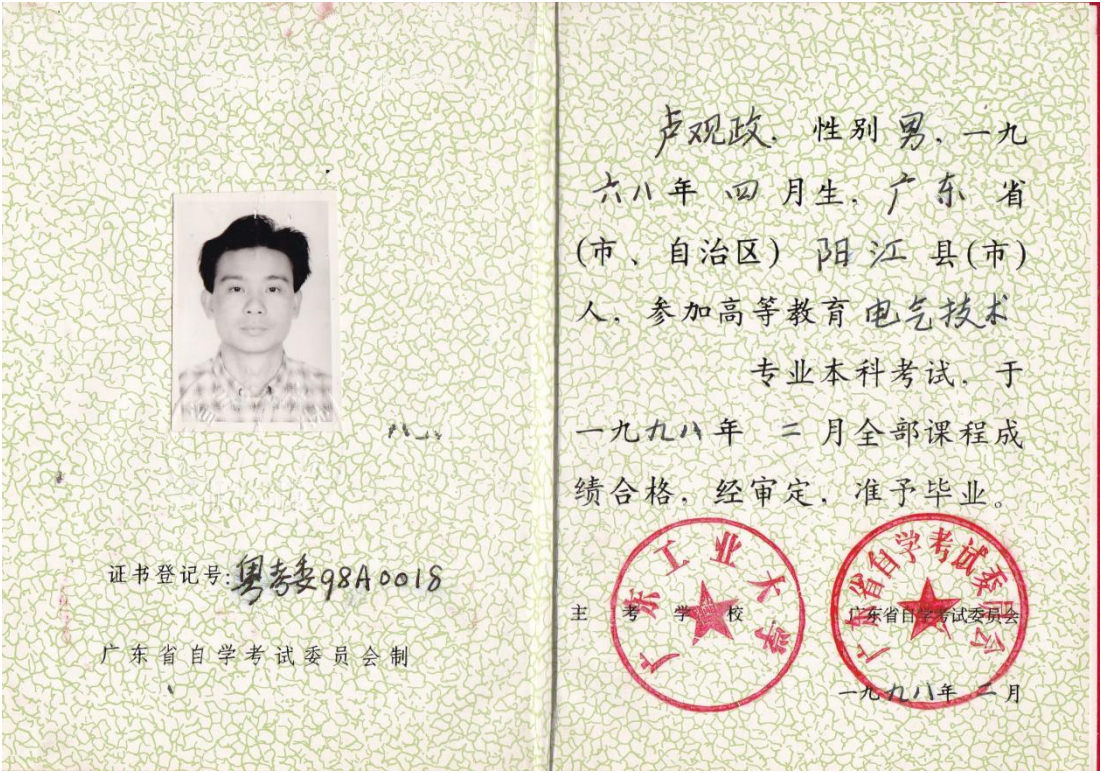 证书登记号:粤考委98A0018
广东省自学考试委员会制
卢观政，性别 男，一九
六八年 四 月生，广东 省
(市、自治区) 阳江 县(市)
人，参加高等教育 电气技术
专业本科考试，于
一九九八年 二 月全部课程成
绩合格，经审定，准予毕业。
广东工业大学
广东省自学考试委员会
主考学校
广东省自学考试委员会
一九九八年 二 月